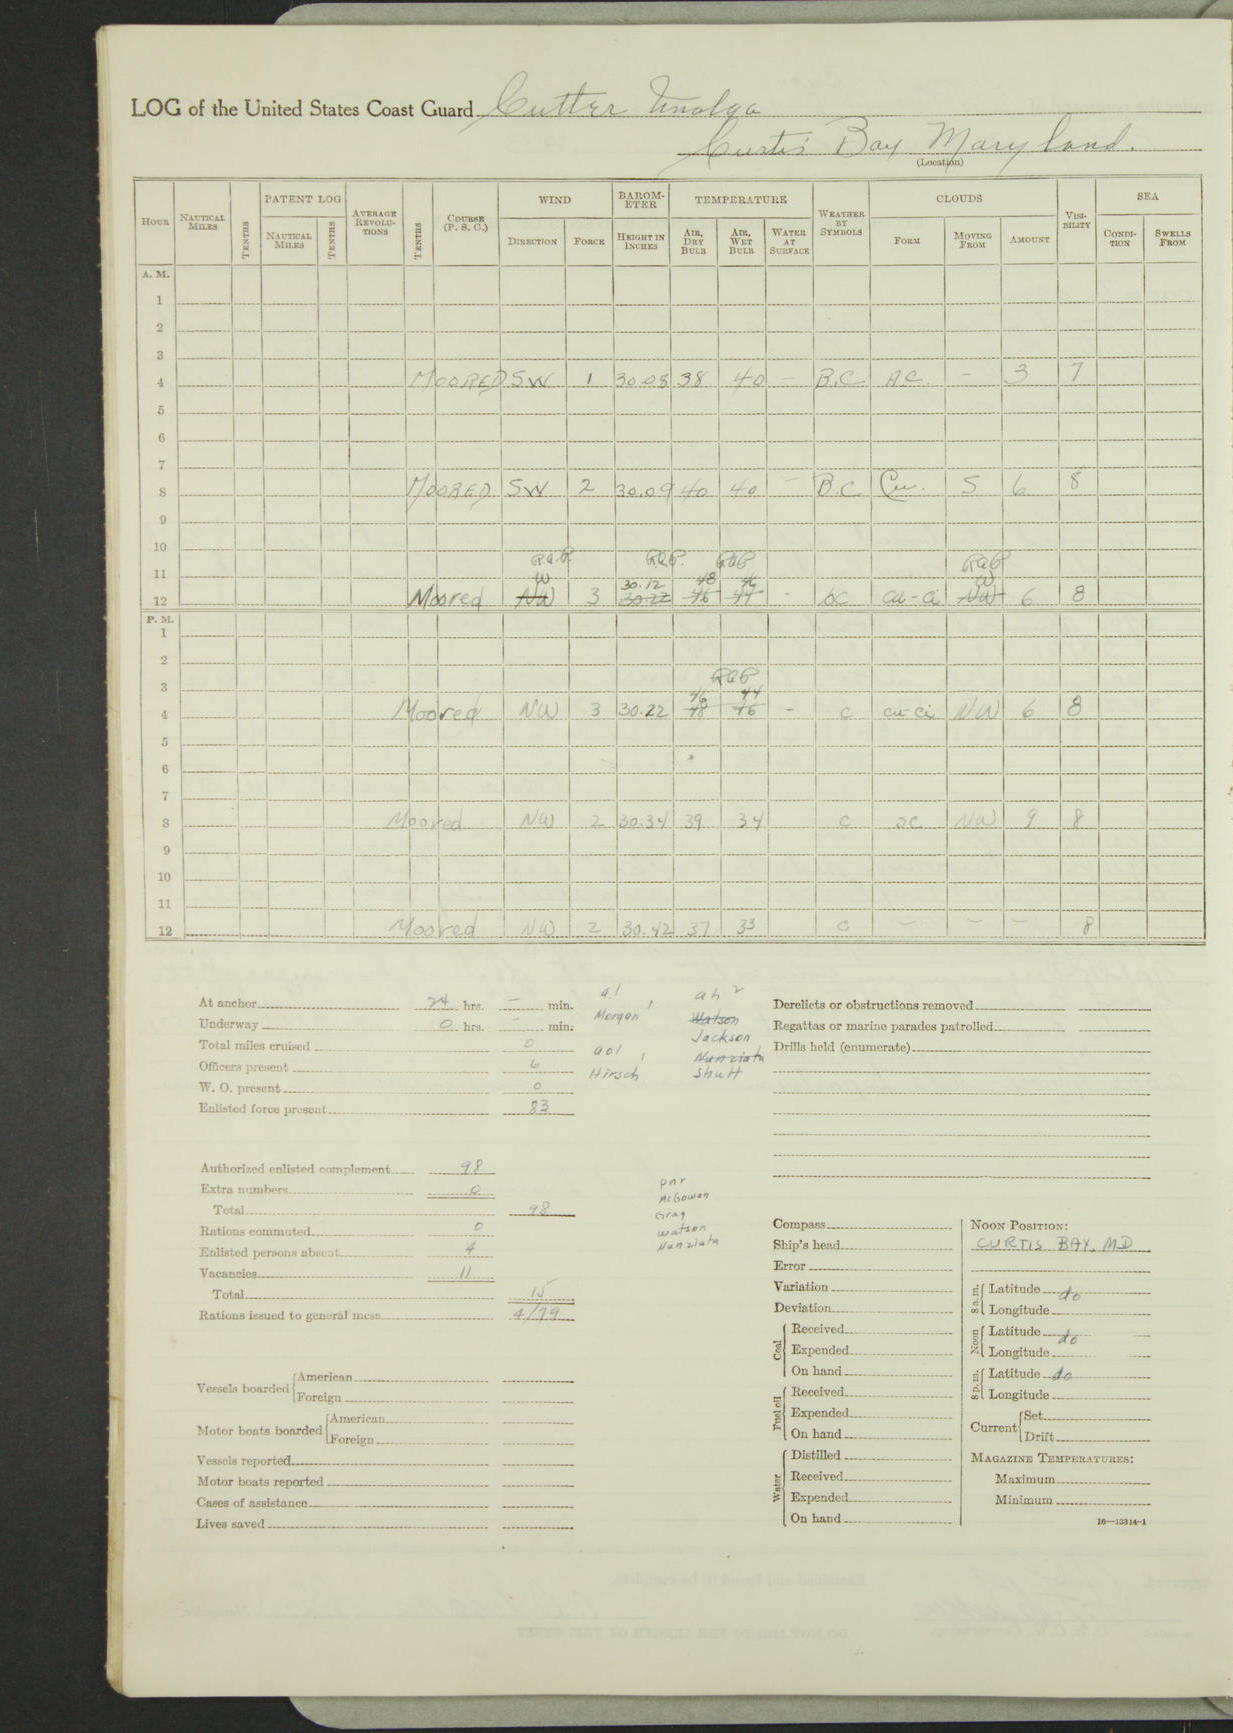 LOG of the United States Coast Guard Cutter Unalga
Curtis Bay Maryland.
(Location)
HOUR NAUTICAL MILES TENTHS PATENT LOG NAUTICAL MILES TENTHS AVERAGE REVOLUTIONS TENTHS COURSE (P. S. C.) WIND DIRECTION FORCE BAROMETER HEIGHT IN INCHES TEMPERATURE AIR, DRY BULB AIR, WET BULB WATER AT SURFACE WEATHER BY SYMBOLS CLOUDS FORM MOVING FROM AMOUNT VISIBILITY SEA CONDITION SWELLS FROM
A. M.
1
2
3
4 MOORED SW 1 30.08 38 40 - B.C AC - 3 7
5
6
7
8 MOORED SW 2 30.09 40 40 - B.C Cu. S 6 8
9
10
R.a.P. R.a.P. RaP RaP
11
W 30.12 48 46 W
12 Moored NW 3 30.22 46 44 - bc cu-ci NW 6 8
P. M.
1
2
RaP
3
46 44
4 Moored NW 3 30.22 48 46 - c cu-ci NW 6 8
5
6
7
8 Moored NW 2 30.34 39 34 c sc NW 9 8
9
10
11
12 Moored NW 2 30.42 37 33 c - - - 8
At anchor 24 hrs. - min.
Underway 0 hrs. - min.
Total miles cruised 0
Officers present 6
W. O. present 0
Enlisted force present 83
Authorized enlisted complement 98
Extra numbers 0
Total 98
Rations commuted 0
Enlisted persons absent 4
Vacancies 11
Total 15
Rations issued to general mess 4/79
Vessels boarded American
Foreign
Motor boats boarded American
Foreign
Vessels reported
Motor boats reported
Cases of assistance
Lives saved
al
Morgan
aol
Hirsch
ah 2
Watson
Jackson
Nunziata
Shutt
pnr
McGowan
Gray
Watson
Nunziata
Derelicts or obstructions removed
Regattas or marine parades patrolled
Drills held (enumerate)
Compass
Ship's head
Error
Variation
Deviation
Coal Received
Expended
On hand
Fuel oil Received
Expended
On hand
Water Distilled
Received
Expended
On hand
NOON POSITION:
CURTIS BAY, MD
8 a.m. Latitude do
Longitude
Noon Latitude do
Longitude
8 p.m. Latitude do
Longitude
Current Set
Drift
MAGAZINE TEMPERATURES:
Maximum
Minimum
16—13314-1